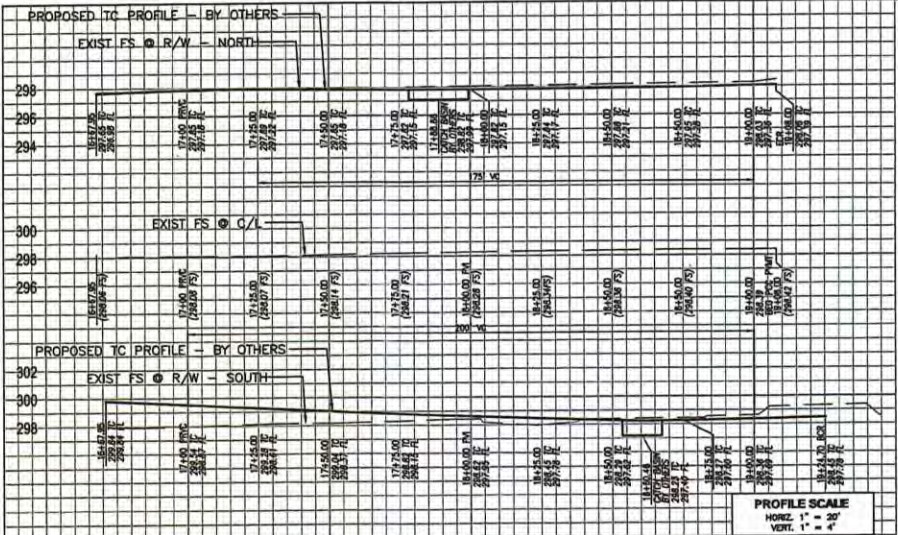 PROPOSED TC PROFILE - BY OTHERS
EXIST FS @ R/W - NORTH
298
296
294
16+67.95
297.65 TC
17+00 PRVC
297.85 TC
297.18 FL
17+25.00
297.89 TC
297.22 FL
17+50.00
297.85 TC
297.18 FL
17+75.00
297.82 TC
297.15 FL
17+88.86
CATCH BASIN
BY OTHERS
18+00.00
297.82 TC
297.15 FL
18+25.00
297.84 TC
297.17 FL
18+50.00
297.88 TC
297.21 FL
297.95 TC
19+00.00
298.03 TC
ECR
19+08.00
298.06 TC
297.39 FL
175' VC
EXIST FS @ C/L
300
298
296
16+67.95
(298.06 FS)
17+00 PRVC
(298.08 FS)
17+25.00
(298.07 FS)
17+50.00
(298.14 FS)
17+75.00
(298.21 FS)
18+00.00 PM
(298.28 FS)
18+25.00
(298.34FS)
18+50.00
(298.38 FS)
(298.40 FS)
19+00.00
298.39
BEG PCC PVMT
19+08.00
(298.42 FS)
200' VC
PROPOSED TC PROFILE - BY OTHERS
EXIST FS @ R/W - SOUTH
302
300
298
16+67.95
299.84 TC
17+00 PRVC
299.54 TC
298.87 FL
17+25.00
299.28 TC
298.61 FL
17+50.00
299.04 TC
298.37 FL
17+75.00
298.82 TC
298.15 FL
18+00.00 PM
298.62 TC
297.95 FL
18+25.00
298.45 TC
297.78 FL
18+50.00
298.29 TC
297.62 FL
CATCH BASIN
BY OTHERS
298.23 TC
18+75.00
298.27 TC
297.60 FL
19+00.00
297.69 FL
19+24.70 BCR
298.45 TC
297.78 FL
PROFILE SCALE
HORIZ. 1" = 20'
VERT. 1" = 4'